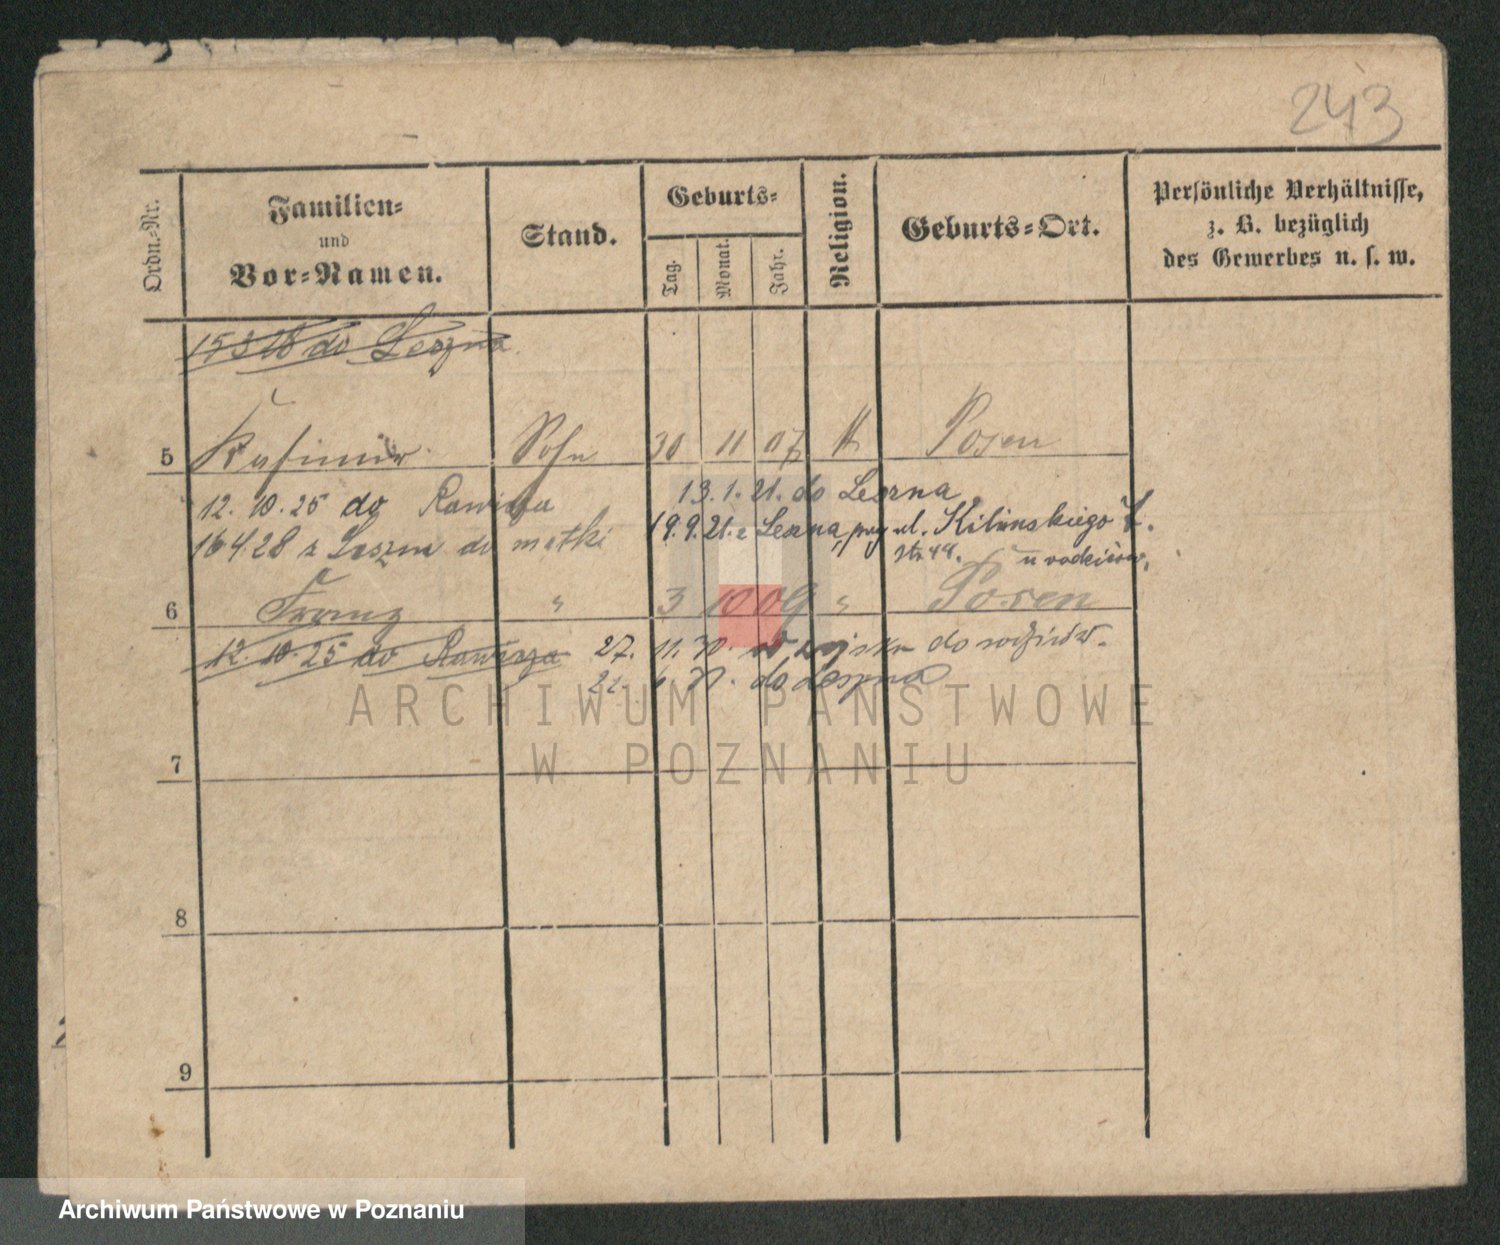 243
Ordn.-Nr.
Familien- und Vor-Namen.
Stand.
Geburts-
Tag.
Monat.
Jahr.
Religion.
Geburts-Ort.
Persönliche Verhältnisse,
z. B. bezüglich
des Gewerbes u. s. w.
15 3 28 do Leszna
5 Kasimir Sohn 30 11 07 k Posen
12. 10. 25 do Rawicza
13. 1. 21. do Leszna
16 4 28 z Leszna do matki
19. 9. 21. z Leszna, przy ul. Kilinskiego
u rodziców.
6 Franz " 3 10 09 " Posen
12. 10. 25 do Rawicza
27. 11. 30. z wojska do rodziców.
do Leszna
7
8
9
ARCHIWUM PAŃSTWOWE
W POZNANIU
Archiwum Państwowe w Poznaniu